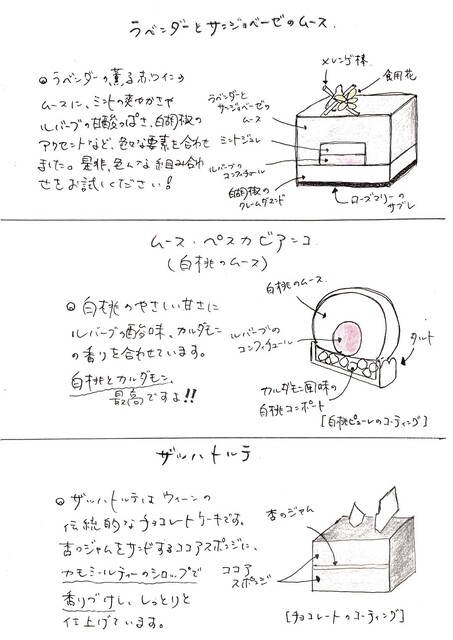 ラベンダーとサンジョベーゼのムース.
ラベンダーの薫る赤ワインの
ムースに、ミントの爽やかさや
ルバーブの甘酸っぱさ、白胡椒の
アクセントなど、色々な要素を合わせ
ました。是非、色んな組み合わ
せをお試しください!
メレンゲ棒
食用花
ラベンダーと
サンジョベーゼの
ムース
ミントジュレ
ルバーブの
コンフィチュール
白胡椒の
クレームダマンド
ローズマリーの
サブレ
ムース・ペスカビアンコ
(白桃のムース)
白桃のやさしい甘さに
ルバーブの酸味、カルダモン
の香りを合わせています。
白桃とカルダモン、
最高ですよ!!
白桃のムース
ルバーブの
コンフィチュール
タルト
カルダモン風味の
白桃コンポート
[白桃ピューレのコーティング]
ザッハトルテ
ザッハトルテはウィーンの
伝統的なチョコレートケーキです。
杏のジャムをサンドするココアスポンジに、
カモミールティーのシロップで
香りづけし、しっとりと
仕上げています。
杏のジャム
ココア
スポンジ
[チョコレートのコーティング]